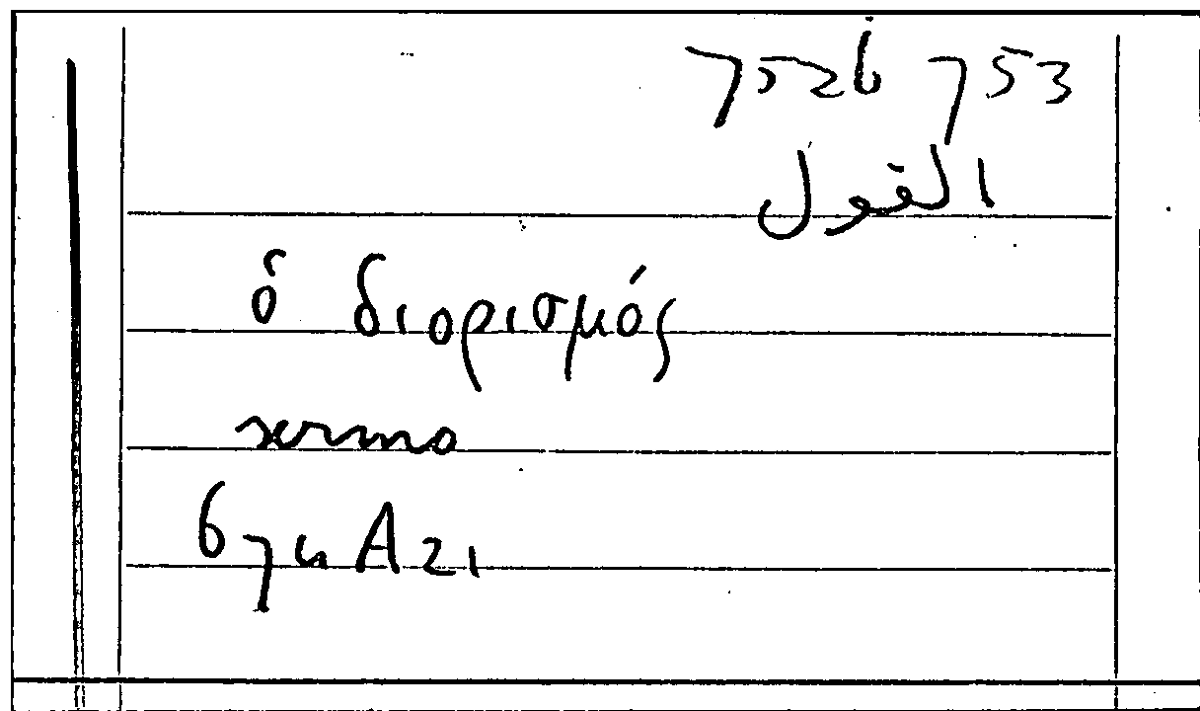 752b 753
القول
ὁ διορισμός
sermo
674 A 21